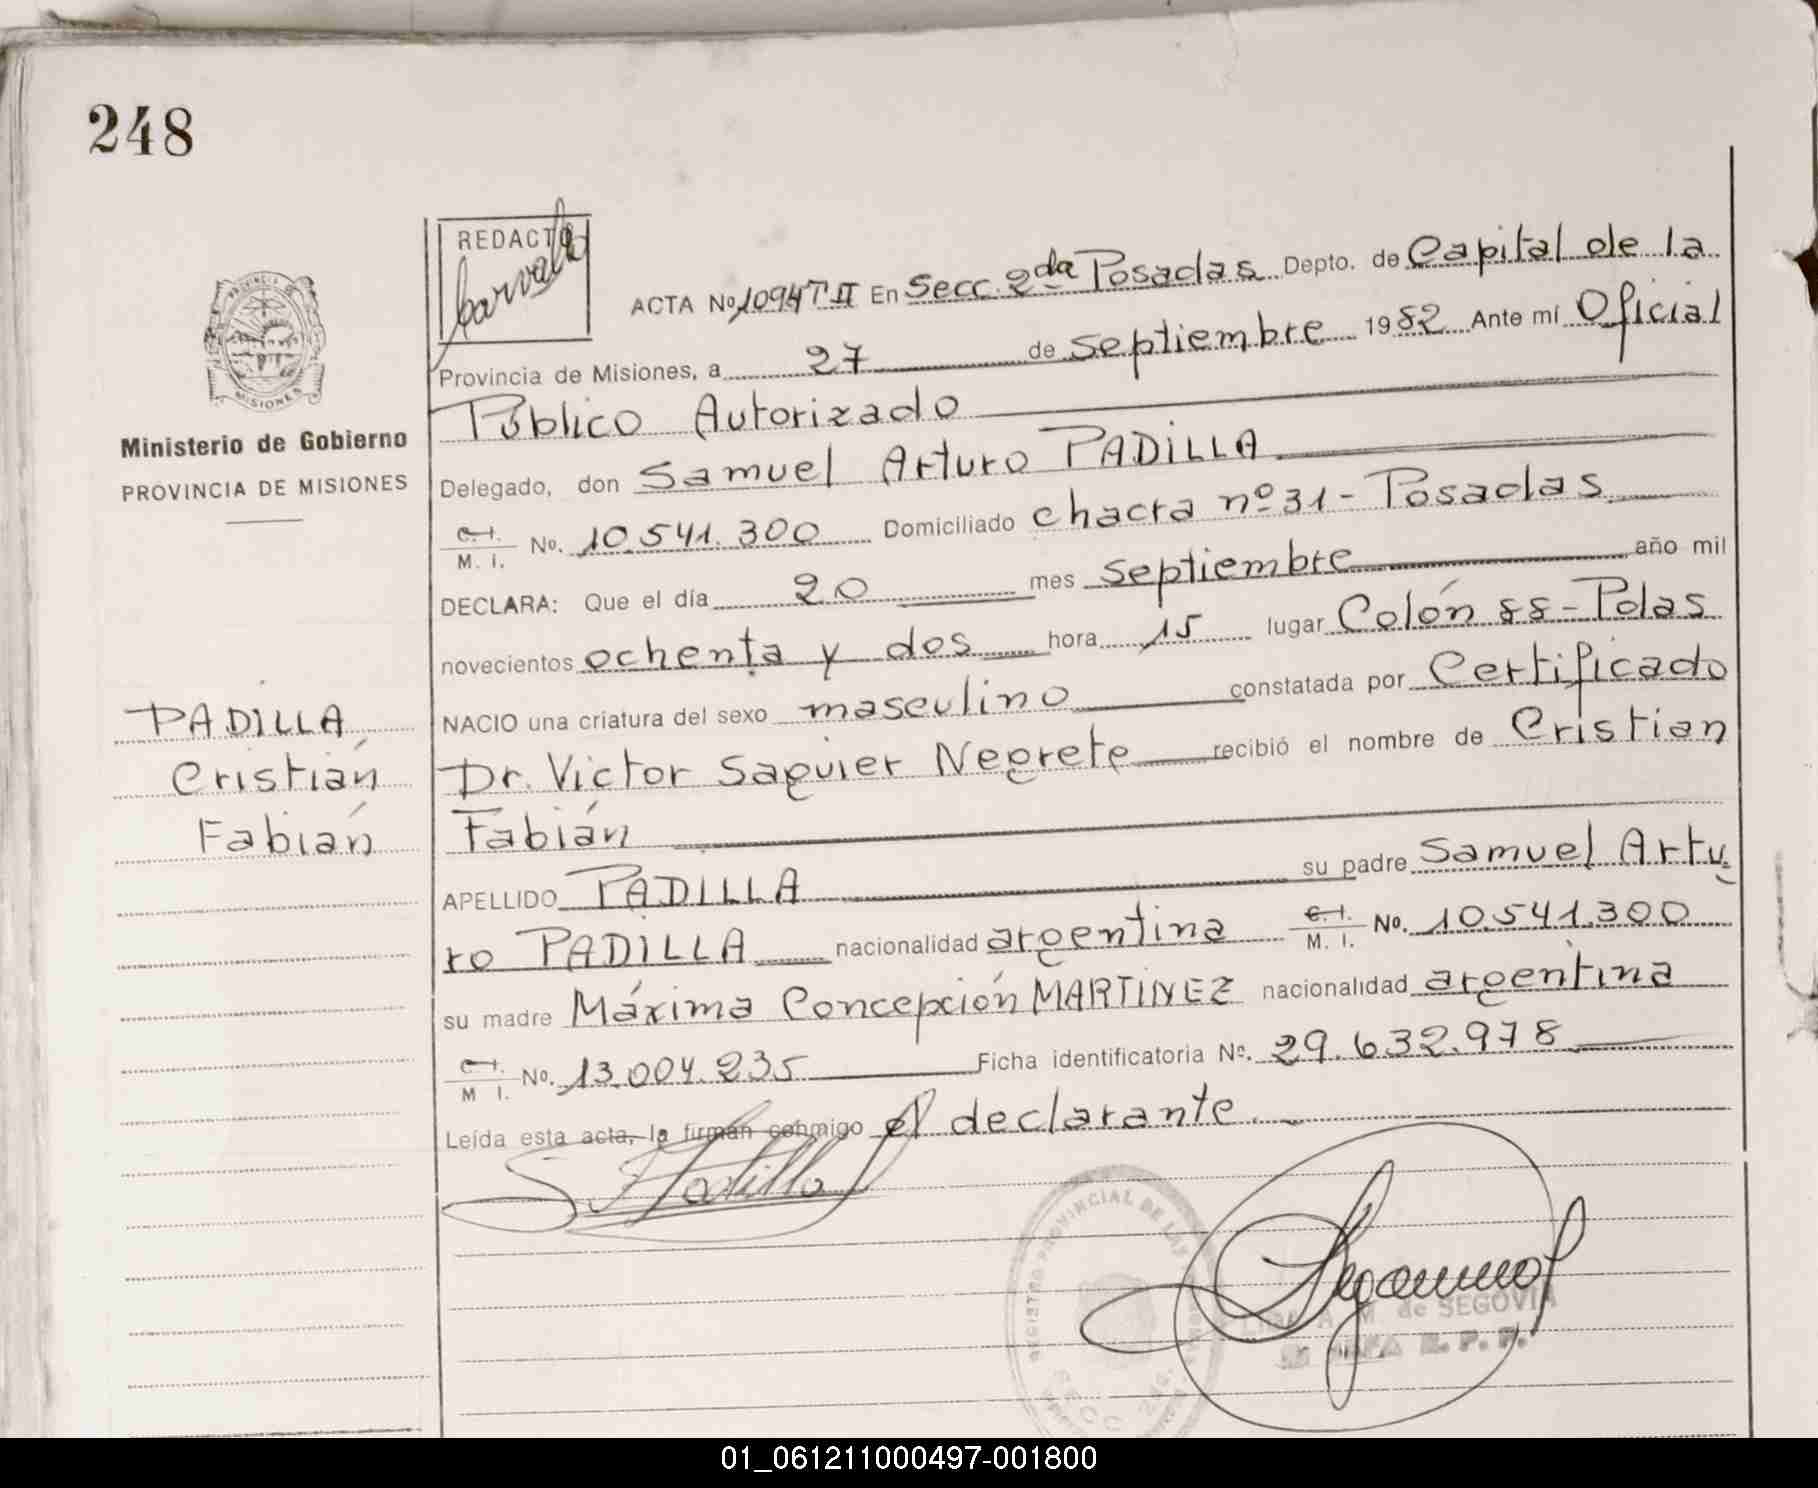 248
REDACTO
Carvallo
PROVINCIA DE
MISIONES
Ministerio de Gobierno
PROVINCIA DE MISIONES
ACTA No 1094 T II En Secc. 2da Posadas Depto. de Capital de la
Provincia de Misiones, a 27 de septiembre 1982 Ante mí Oficial
Público Autorizado
Delegado, don Samuel Arturo PADILLA
C. I. / M. I. No. 10.541.300 Domiciliado chacra nº 31 - Posadas
DECLARA: Que el día 20 mes septiembre año mil
novecientos ochenta y dos hora 15 lugar Colón 88 - Pdas
NACIO una criatura del sexo masculino constatada por Certificado
Dr. Victor Saguier Negrete recibió el nombre de Cristian
Fabián
APELLIDO PADILLA su padre Samuel Artu
ro PADILLA nacionalidad argentina C. I. / M. I. No. 10.541.300
su madre Máxima Concepción MARTINEZ nacionalidad argentina
C. I. / M I. No. 13.004.235 Ficha identificatoria Nº. 29.632.978
Leída esta acta, la firman conmigo el declarante.
PADILLA,
Cristián
Fabián
S. Padilla
REGISTRO PROVINCIAL DE LAS
SECC 2da.
de SEGOVIA
JEFA R. P. P.
01_061211000497-001800